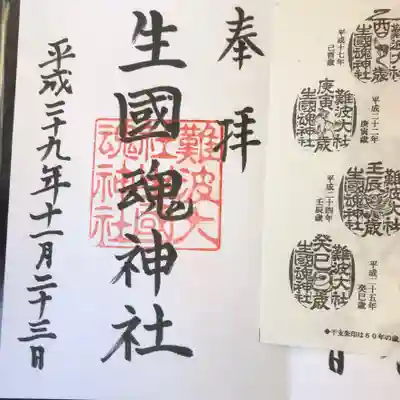 奉拝
生國魂神社
難波大
社生國
魂神社
平成二十九年十一月二十三日
乙酉歳
難波大社
生國魂神社
平成十七年
己酉歳
庚寅歳
難波大社
生國魂神社
平成二十二年
庚寅歳
壬辰歳
難波大社
生國魂神社
平成二十四年
壬辰歳
癸巳歳
難波大社
生國魂神社
平成二十五年
癸巳歳
◆干支朱印は60年の歳